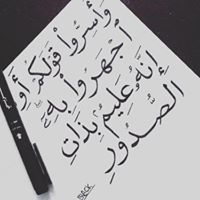 وَأَسِرُّوا قَوْلَكُمْ أَوِ
اجْهَرُوا بِهِ
إِنَّهُ عَلِيمٌ بِذَاتِ
الصُّدُورِ